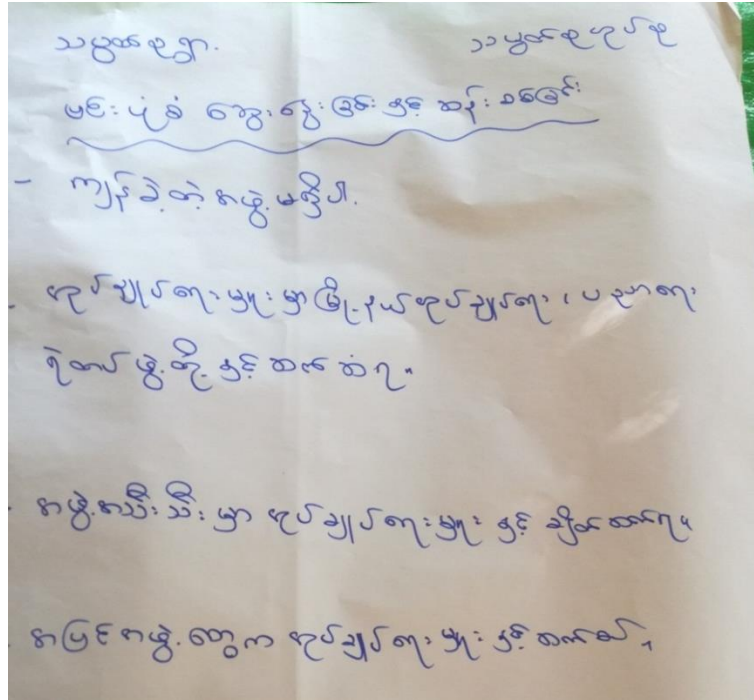 သပွတ်စုရွာ. သပွတ်စုအုပ်စု
ပုင်းပုံစံ ဆွေးနွေးခြင်းနှင့် ဆန်းစစ်ခြင်း
- ကျန်ခဲ့တဲ့ အဖွဲ့ မရှိပါ.
- အုပ်ချုပ်ရေးမှူးမှာ မြို့နယ်အုပ်ချုပ်ရေး၊ ပညာရေး
ရဲတပ်ဖွဲ့တို့နှင့် ဆက်ဆံရ။
- အဖွဲ့အသီးသီးမှာ အုပ်ချုပ်ရေးမှူးနှင့် ချိတ်ဆက်ရ။
- အပြင်အဖွဲ့တွေက အုပ်ချုပ်ရေးမှူးနှင့် ဆက်စပ်။